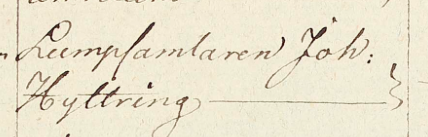 Lumpsamlaren Joh:
Hyltring